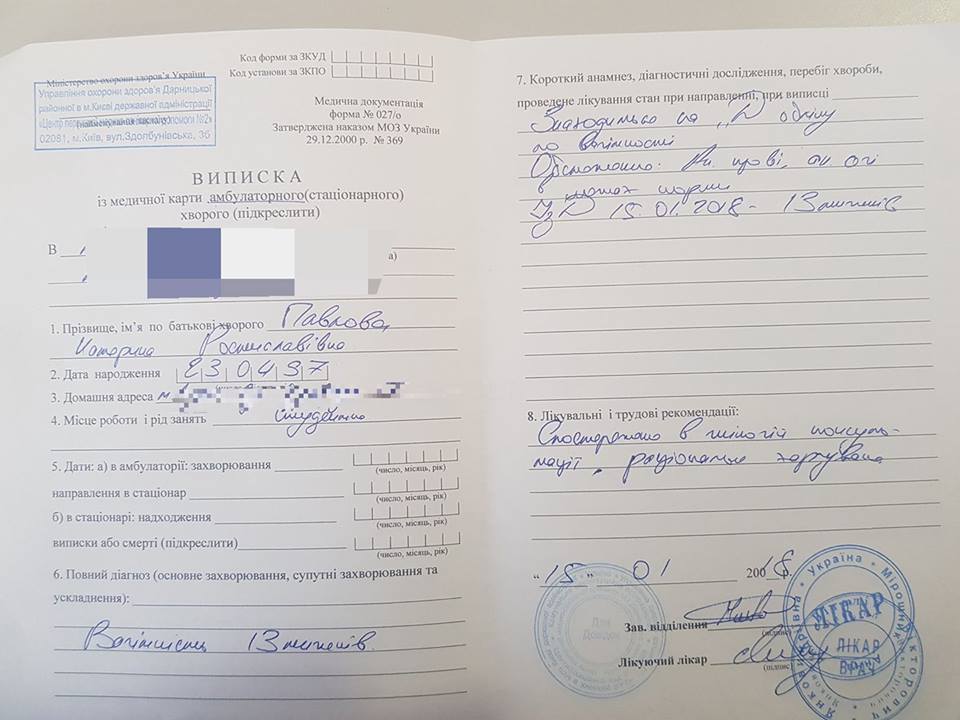 Код форми за ЗКУД
Код установи за ЗКПО
Міністерство охорони здоров'я України
Управління охорони здоров'я Дарницької
районної в м.Києві державної адміністрації
(найменування закладу)
02081, м.Київ, вул.Здолбунівська, 3б
Медична документація
форма № 027/о
Затверджена наказом МОЗ України
29.12.2000 р. № 369
ВИПИСКА
із медичної карти амбулаторного(стаціонарного)
хворого (підкреслити)
В
а)
1. Прізвище, ім'я по батькові хворого Павлова
Катерина Ростиславівна
2. Дата народження 230497
3. Домашня адреса м
4. Місце роботи і рід занять студентка
5. Дати: а) в амбулаторії: захворювання
(число, місяць, рік)
направлення в стаціонар
(число, місяць, рік)
б) в стаціонарі: надходження
(число, місяць, рік)
виписки або смерті (підкреслити)
(число, місяць, рік)
6. Повний діагноз (основне захворювання, супутні захворювання та
ускладнення):
Вагітність 13 тижнів
7. Короткий анамнез, діагностичні дослідження, перебіг хвороби,
проведене лікування стан при направленні, при виписці
Знаходиться на "Д" обліку
по вагітності
Обстежена: Ан. крові, ан. сечі
в межах норми
УзД 15.01.2018 - 13 тижнів
8. Лікувальні і трудові рекомендації:
Спостереження в жіночій консуль-
тації, раціональне харчування
"15" 01 2018 р.
Зав. відділення
(підпис)
Лікуючий лікар
(підпис)
Для
Довідок
Україна
ЛІКАР
ЛІКАР
ВРАЧ